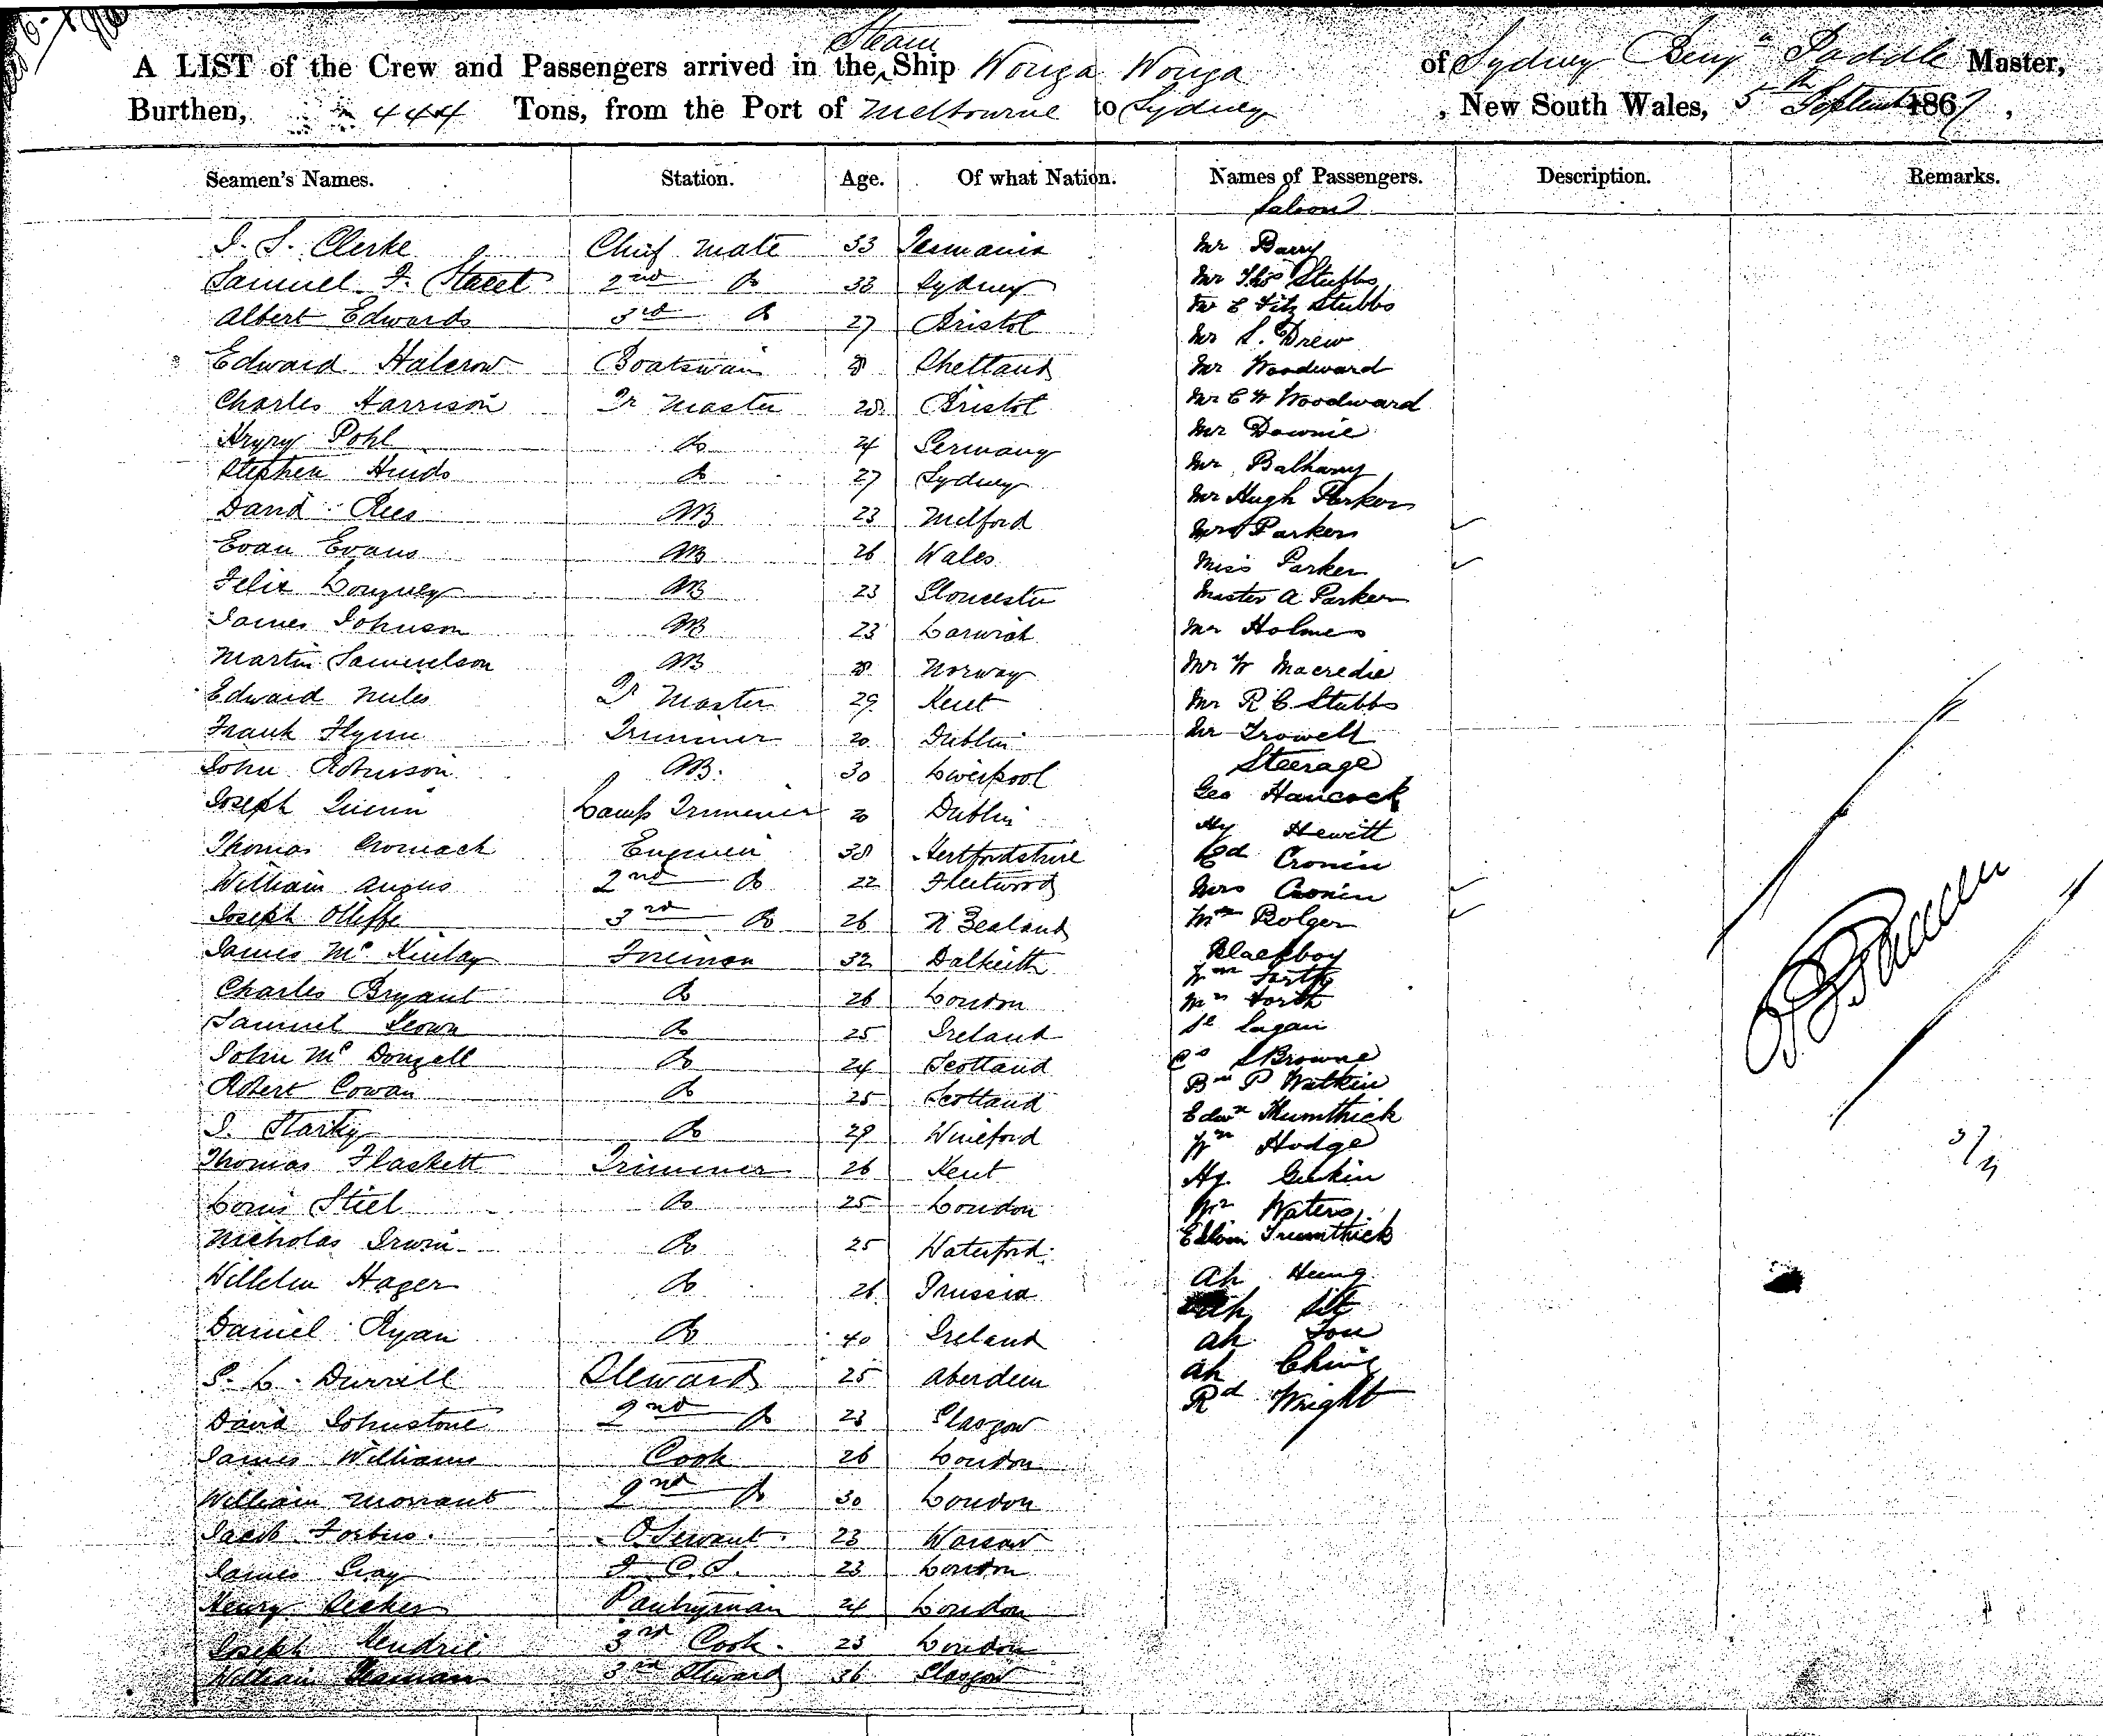 Steam
A LIST of the Crew and Passengers arrived in the Ship Wonga Wonga of Sydney Benjn Paddle Master,
Burthen, 444 Tons, from the Port of Melbourne to Sydney, New South Wales, 5th September 1867,
Seamen's Names. Station. Age. Of what Nation. Names of Passengers. Description. Remarks.
Saloon
J. S. Clerke Chief Mate 33 Tasmania Mr Barry
Samuel F. Street 2nd Do 33 Sydney Mr Thos Stubbs
Albert Edwards 3rd Do 27 Bristol Mr C Fitz Stubbs
Edward Halcrow Boatswain Shetland Mr S. Drew
Charles Harrison Qr Master 28 Bristol Mr Woodward
Pohl Do 24 Germany Mr C W Woodward
Stephen Hinds Do 27 Sydney Mr Downie
David Rees AB 23 Milford Mr
Evan Evans AB 26 Wales Mr Hugh Parker
Felix AB 23 Gloucester Mrs Parker
James Johnson AB 23 Larwick Miss Parker
Martin Samuelson AB 28 Norway Master A Parker
Edward Miles Qr Master 29 Kent Mr Holmes
Frank Flynn Trimmer 20 Dublin Mr W Macredie
John Robinson AB. 30 Liverpool Mr R C Stubbs
Joseph Quinn Lamp Trimmer 20 Dublin Mr Trowell
Steerage
Thomas Cromach Engineer 38 Hertfordshire Geo Hancock
William Angus 2nd Do 22 Fleetwood Hy Hewitt
Joseph Olliffe 3rd Do 26 N Zealand Ed Cronin
James McKinlay Fireman 32 Dalkeith Mrs Cronin
Charles Bryant Do 26 London Mrs Bolger
Samuel Keown Do 25 Ireland Blackboy
John McDougall Do 24 Scotland Wm Forth
Robert Cowan Do 25 Scotland Mrs Forth
J. Starky Do 29 Wineford
Thomas Flaskett Trimmer 26 Kent S Browne
Louis Stiel Do 25 London P Watkin
Nicholas Irwin Do 25 Waterford Edwn Trumthick
Wilhelm Hager Do 26 Prussia Wm Hodge
Daniel Ryan Do 40 Ireland Hy.
P. L. Durrell Steward 25 Aberdeen Wm Waters
David Johnstone 2nd Do 23 Glasgow Edwin Trumthick
James Williams Cook 26 London Ah Hung
William Morrant 2nd Do 30 London Ah Sit
Jacob Forbus. O Servant 23 Warsaw Ah
James Gray F. C. S. 23 London Ah Ching
Henry Becker Pantryman 24 London Rd Wright
Joseph Kendrie 3rd Cook 23 London
William 3rd Steward 36 Glasgow